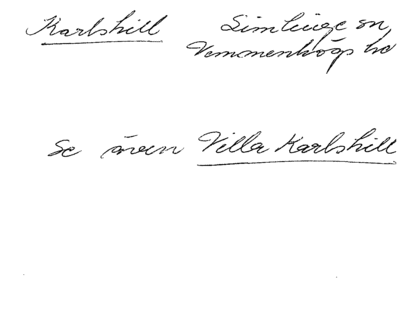 Karlshill Simlinge sn
Vemmenhögs hd
Se även Villa Karlshill